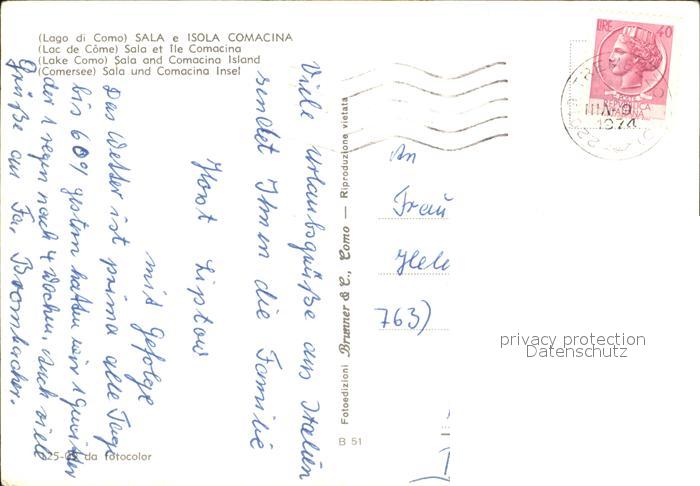 (Lago di Como) SALA e ISOLA COMACINA
(Lac de Côme) Sala et Île Comacina
(Lake Como) Sala and Comacina Island
(Comersee) Sala und Comacina Insel
Viele Urlaubsgrüße aus Italien
sendet Ihnen die Familie
Horst Liptow
mit Gefolge
Das Wetter ist prima alle Tage
bis 60% gestern hatten wir 1 Gewitter
der 1 regen nach 4 Wochen. Auch viele
Grüße an Fa. Brombacher.
Fotoedizioni Brunner & C., Como — Riproduzione vietata
B 51
da fotocolor
LIRE 40
POSTE
REPUBBLICA
ITALIANA
1974
An
Frau
Hele
763)
privacy protection
Datenschutz